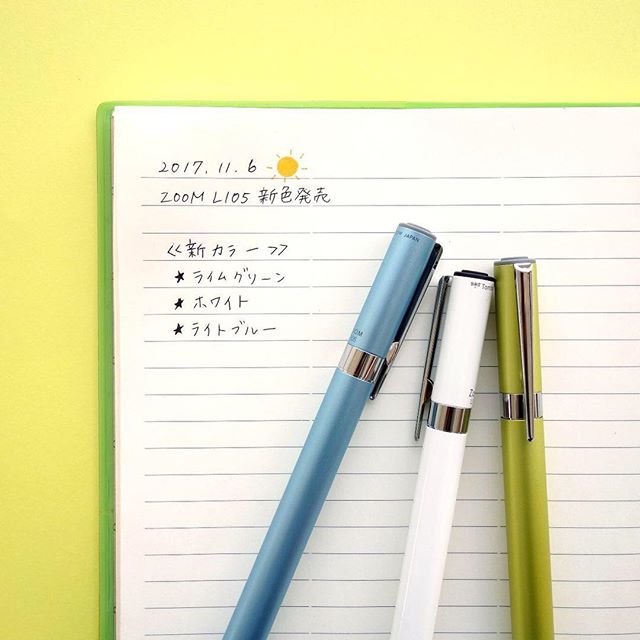 2017.11.6
ZOOM L105 新色発売
<<新カラー>>
★ライムグリーン
★ホワイト
★ライトブルー
JAPAN